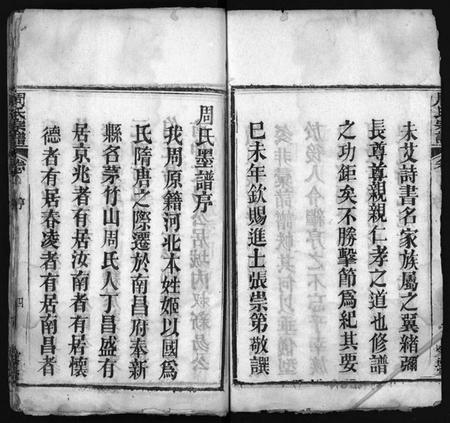 未艾詩書名家族屬之翼緒彌
長尊尊親親仁孝之道也修譜
之功鉅矣不勝擊節爲紀其要
巳未年欽賜進士張崇第敬譔
周氏墨譜序
我周原籍河北本姓姬以國爲
氏隋唐之際遷於南昌府奉新
縣名茅竹山周氏人丁昌盛有
居京兆者有居汝南者有居懷
德者有居春凌者有居南昌者
周氏宗譜
序
四